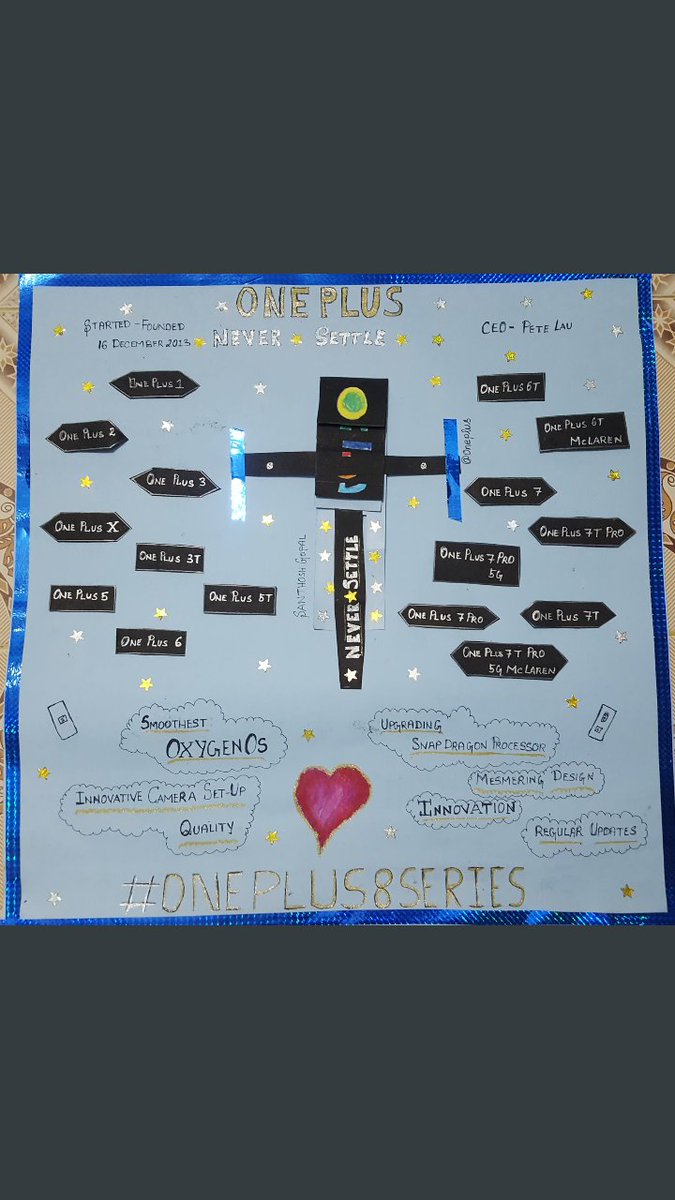 ONE PLUS
NEVER SETTLE
STARTED - FOUNDED
16 DECEMBER 2013
CEO - PETE LAU
ONE PLUS 1
ONE PLUS 2
ONE PLUS 3
ONE PLUS X
ONE PLUS 3T
ONE PLUS 5
ONE PLUS 5T
ONE PLUS 6
@Oneplus
SANTHOSH GOPAL
NEVER SETTLE
ONE PLUS 6T
ONE PLUS 6T
MCLAREN
ONE PLUS 7
ONE PLUS 7T PRO
ONE PLUS 7 PRO
5G
ONE PLUS 7 PRO
ONE PLUS 7T
ONE PLUS 7T PRO
5G MCLAREN
SMOOTHEST
OXYGENOS
INNOVATIVE CAMERA SET-UP
QUALITY
UPGRADING
SNAP DRAGON PROCESSOR
MESMERING DESIGN
INNOVATION
REGULAR UPDATES
#ONEPLUS8SERIES